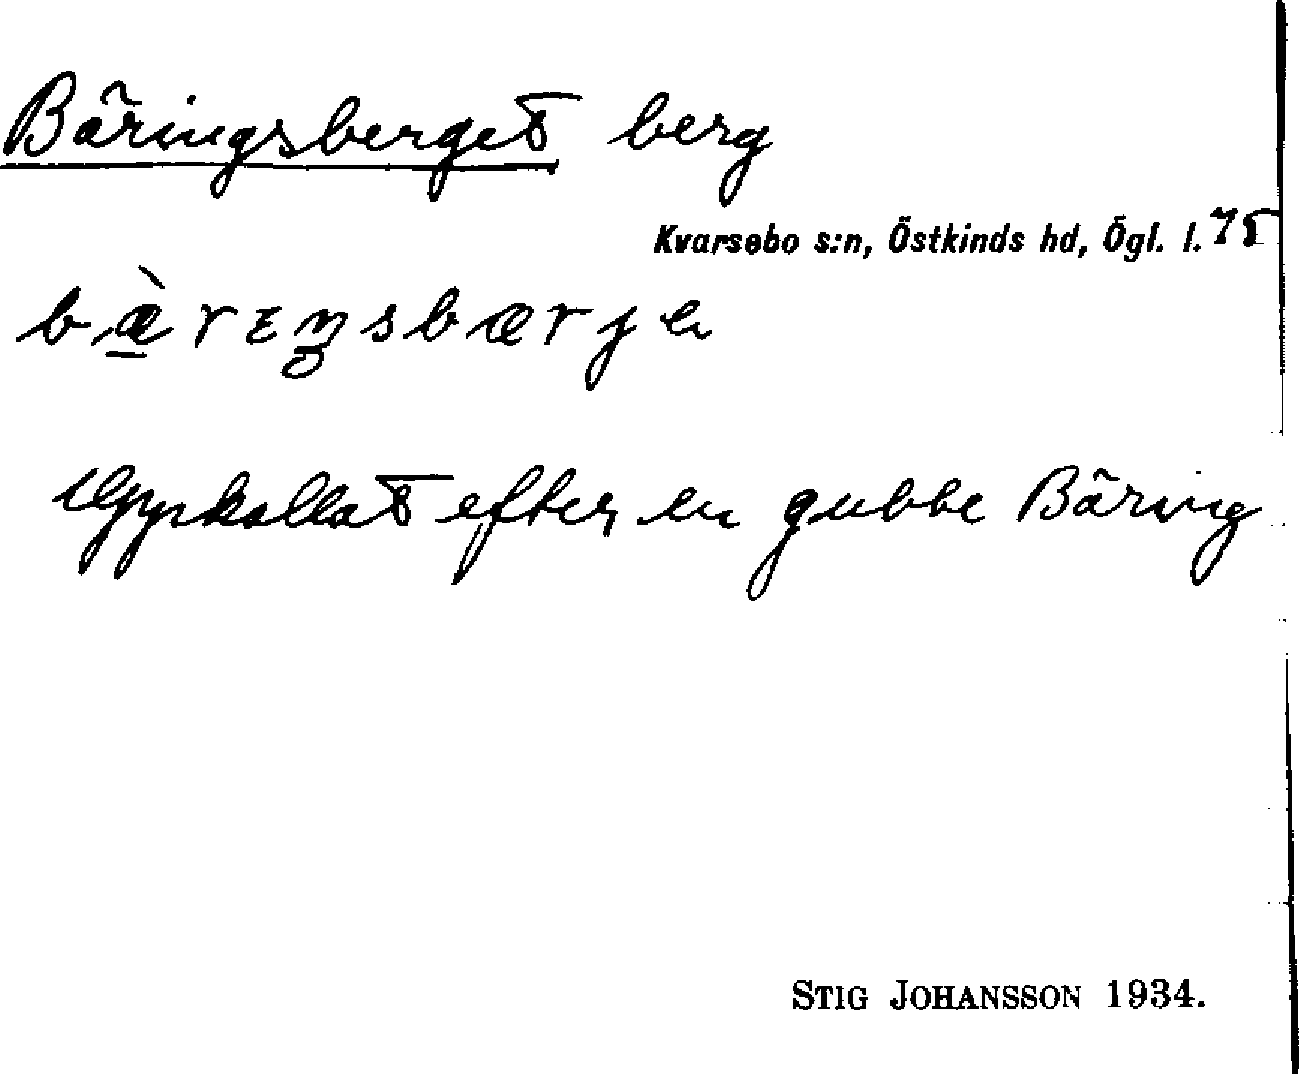 Bäringsberget berg
Kvarsebo s:n, Östkinds hd, Ögl. l. 75
bæ̀rɪŋsbærje
Uppkallat efter en gubbe Bäring
STIG JOHANSSON 1934.